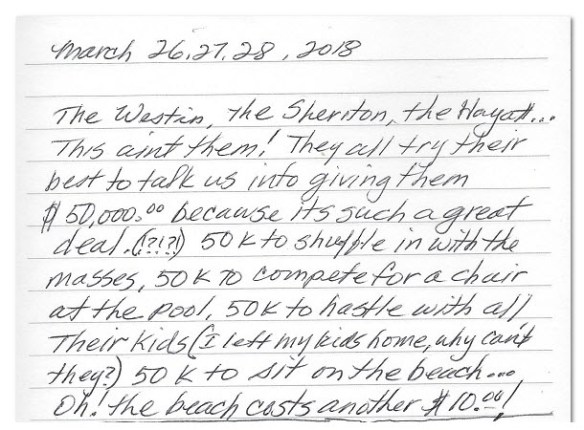 March 26,27,28, 2018
The Westin, the Sheriton, the Hayatt...
This aint them! They all try their
best to talk us into giving them
$50,000.00 because its such a great
deal.(!?!?!) 50K to shuffle in with the
masses, 50K to compete for a chair
at the pool, 50K to hastle with all
Their kids (I left my kids home, why can't
they?) 50K to sit on the beach...
Oh! the beach costs another $10.00!